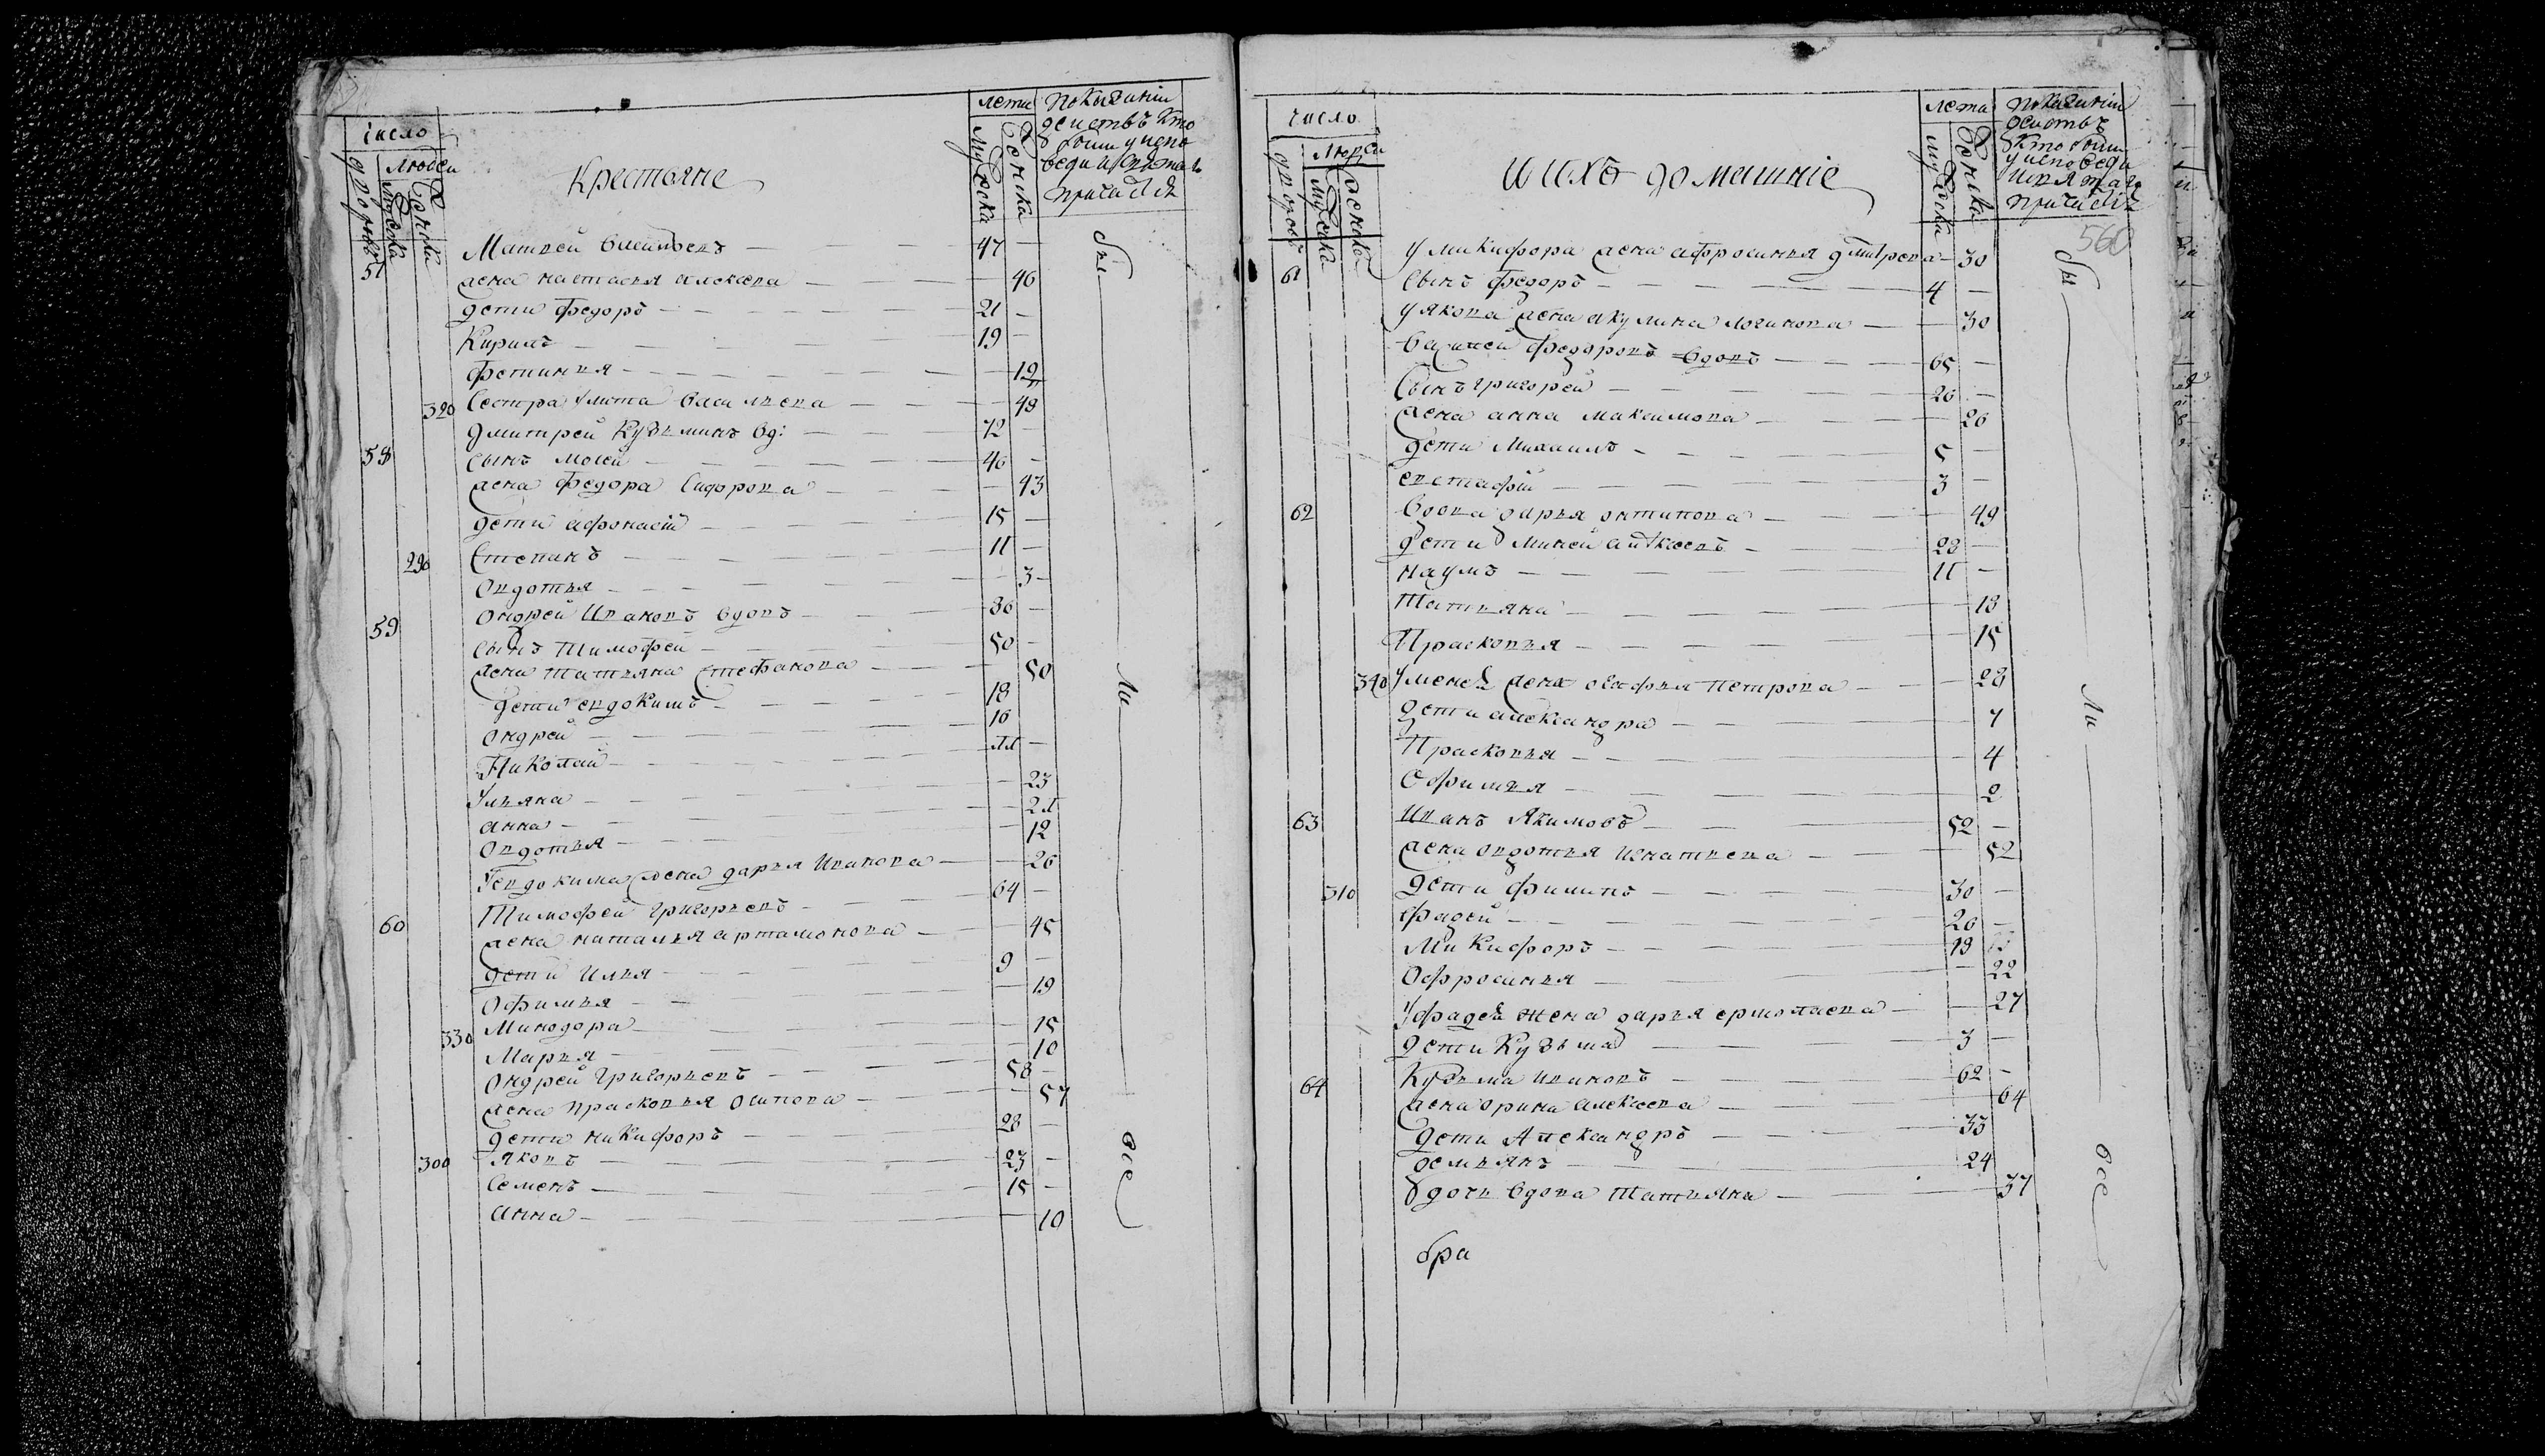 число
дворовъ
людей
мужска
женска
Крестьяне
лета
мужска
женска
показаніи
действъ кто
былъ у испо
веди и святаго
причастія
Матвей Василевъ — 47 —
57
жена настасья алексева — 46
дети федоръ — 21 —
Кирилъ — 19 —
фетинья — 12
320 сестра улита василева — 48
дмитрей Кузьминъ вд: 72 —
58 сынъ мосей — 46 —
жена федора сидорова — 43
дети афонасій — 15 —
290 степанъ — 11 —
овдотья — 3
59 ондрей Ивановъ вдовъ — 86 —
сынъ Тимофей — 50 —
жена татьяна стефанова — 50
дети евдокимъ — 18
ондрей — 16
Николай — —
Ульяна — 23
анна — 21
овдотья — 12
У евдокима жена дарья Иванова — 26
60 Тимофей григорьевъ — 64 —
жена наталья артамонова — 45
дети Илья — 9 —
офимья — 19
330 Минодора — 15
Марья — 10
ондрей григорьевъ — 58 —
жена прасковья осипова — 57
дети никифоръ — 28 —
300 Яковъ — 23 —
семенъ — 15 —
анна — 10
бы
ли
все
число
дворовъ
людей
мужска
женска
И ихъ домашніе
лета
мужска
женска
показаніи
действъ
кто былъ
у исповеди
и святаго
причастія
560
у микифора жена афросинья дмитрева — 30
61 сынъ федоръ — 4 —
у якова жена акулина логинова — 30
федоровъ вдовъ — 65 —
сынъ григорей — 26 —
жена анна максимова — 26
дети Михаилъ — 5 —
евстафій — 3 —
62 вдова дарья онтипова — 49
дети — 28 —
наумъ — 11 —
Татьяна — 18
Прасковья — 15
340 жена огафья петрова — 28
дети александра — 7
Прасковья — 4
Офимья — 2
63 Иванъ Якимовъ — 52 —
жена овдотья игнатьева — 52
310 дети филипъ — 30 —
фадей — 26 —
Микифоръ — 19
Офросинья — 22
У фадея жена дарья ермолаева — 27
дети Кузьма — 3 —
64 Кузьма ивановъ — 62 —
жена орина алексева — 64
дети Александръ — 33
демьянъ — 24
дочь вдова Татьяна — 37
бра
бы
ли
все